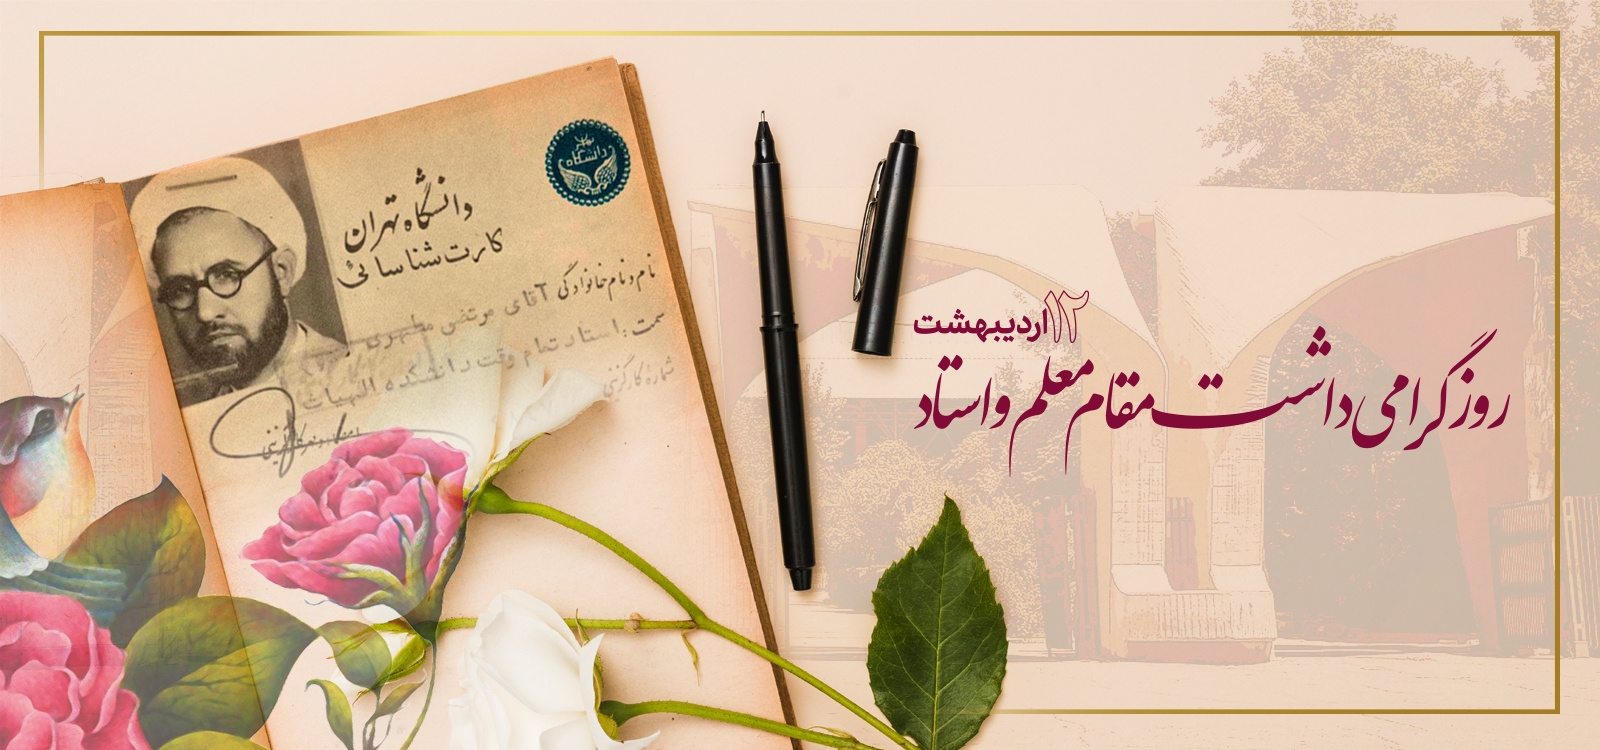 دانشگاه تهران
کارت شناسائی
نام و نام خانوادگی آقای مرتضی مطهری
سمت: استاد تمام وقت دانشکده الهیات
شماره کارگزینی
دانشگاه
تهران
۱۲ اردیبهشت
روز گرامی داشت مقام معلم و استاد